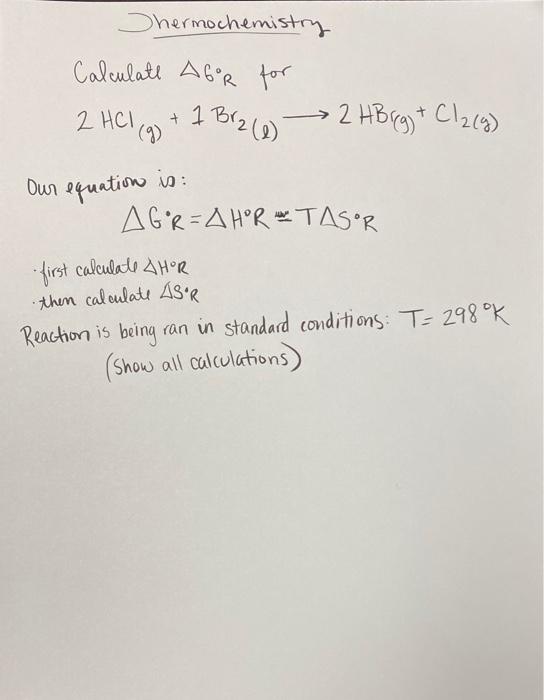 Thermochemistry
Calculate ΔG°R for
2 HCl(g) + 1 Br2(l) → 2 HBr(g) + Cl2(g)
Our equation is:
ΔG°R = ΔH°R - TΔS°R
· first calculate ΔH°R
· then calculate ΔS°R
Reaction is being ran in standard conditions: T = 298 °K
(Show all calculations)